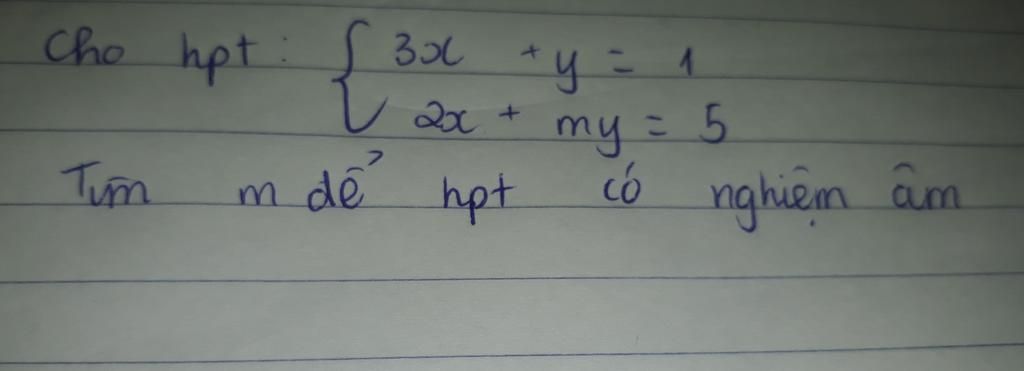 Cho hpt: { 3x + y = 1
2x + my = 5
Tìm m để hpt có nghiệm âm